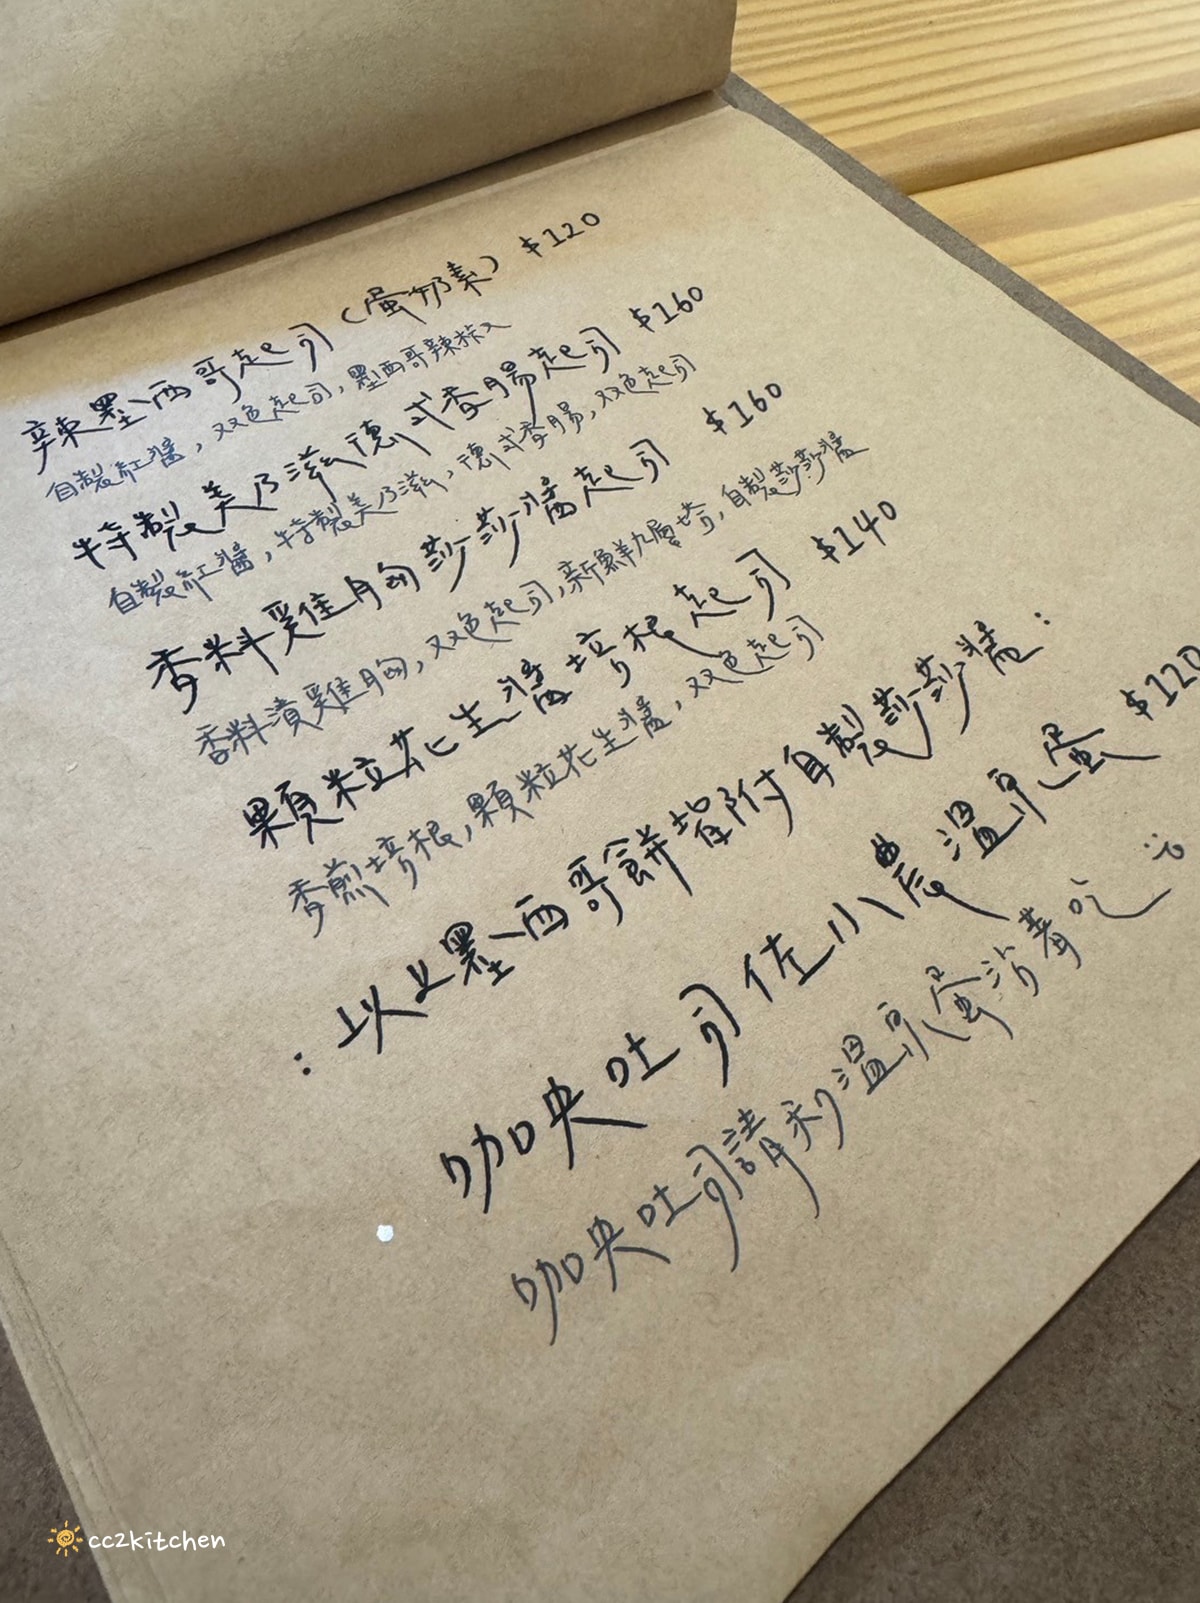 辣墨西哥起司(蛋奶素) $120
自製紅醬, 双色起司, 墨西哥辣椒
特製美乃滋德式香腸起司 $160
自製紅醬, 特製美乃滋, 德式香腸, 双色起司
香料雞胸莎莎醬起司 $160
香料漬雞胸, 双色起司, 新鮮九層塔, 自製莎莎醬
顆粒花生醬培根起司 $140
香煎培根, 顆粒花生醬, 双色起司
:以上墨西哥餅皆附自製莎莎醬:
咖央吐司佐小農溫泉蛋 $120
咖央吐司請和溫泉蛋沾著吃
cc2kitchen